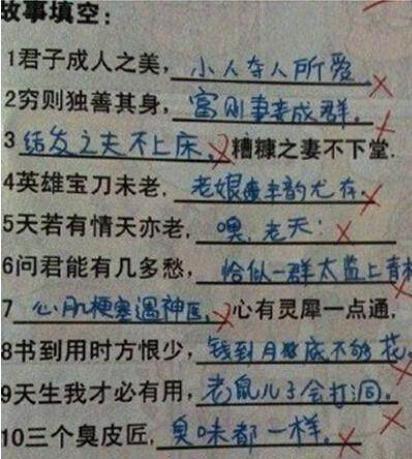 故事填空:
1君子成人之美, 小人夺人所爱
2穷则独善其身, 富则妻妾成群。
3 结发之夫不上床, 糟糠之妻不下堂.
4英雄宝刀未老, 老娘丰韵尤存.
5天若有情天亦老, 噢, 老天!
6问君能有几多愁, 恰似一群太监上青楼
7 心肌梗塞遇神医, 心有灵犀一点通,
8书到用时方恨少, 钱到月底不够花。
9天生我才必有用, 老鼠儿子会打洞。
10三个臭皮匠, 臭味都一样。